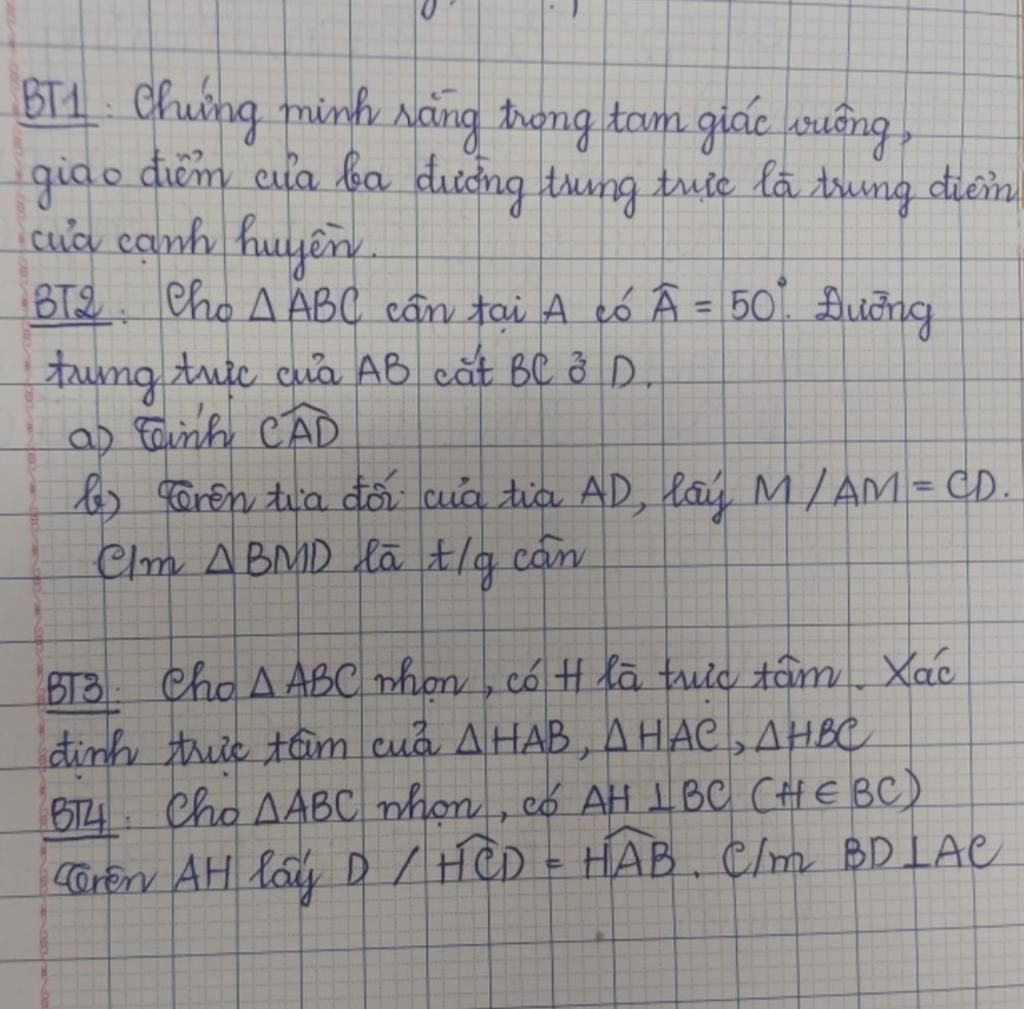 BT1: Chứng minh rằng trong tam giác vuông,
giao điểm của ba đường trung trực là trung điểm
của cạnh huyền.
BT2: Cho △ABC cân tại A có Â = 50°. Đường
trung trực của AB cắt BC ở D.
a) Tính CÂD
b) Trên tia đối của tia AD, lấy M / AM = CD.
C/m △BMD là t/g cân
BT3: Cho △ABC nhọn, có H là trực tâm. Xác
định trực tâm của △HAB, △HAC, △HBC
BT4: Cho △ABC nhọn, có AH ⊥ BC (H ∈ BC)
Trên AH lấy D / HĈD = HÂB. C/m BD ⊥ AC